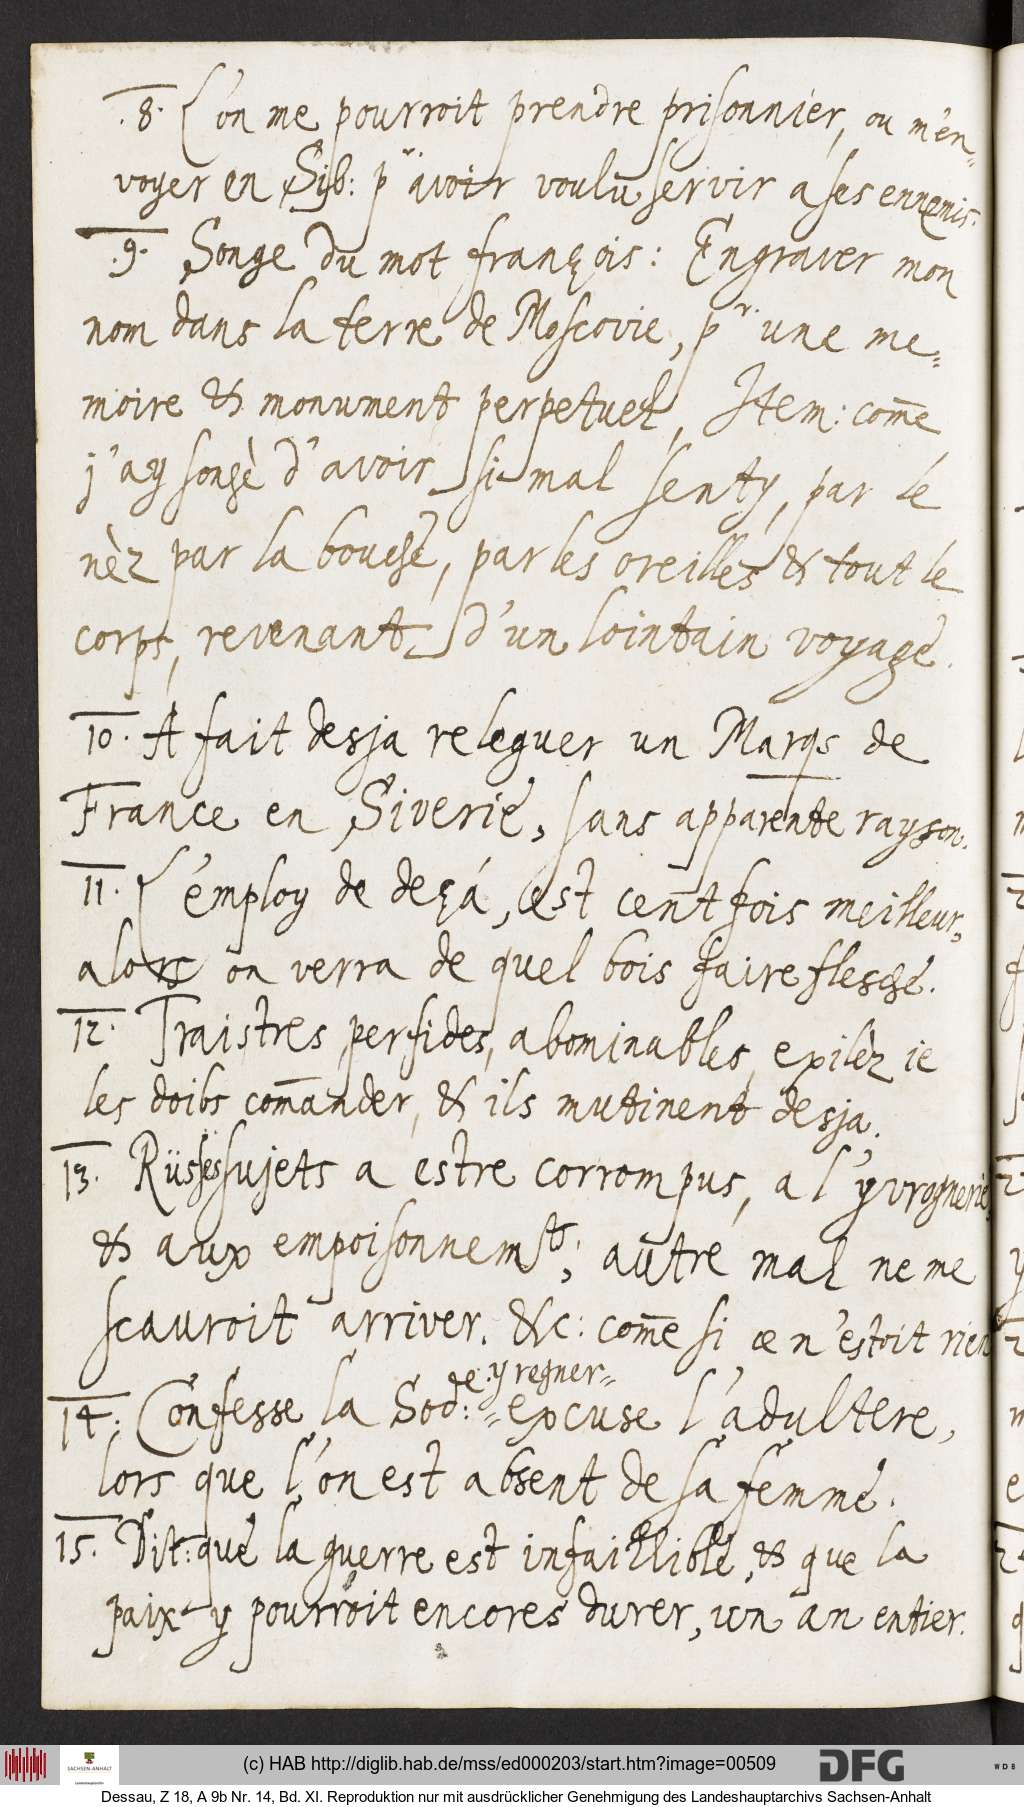 .8. L'on me pourroit prendre prisonnier, ou m'en=
voyer en Sib: pr avoir voulu servir a ses ennemis.
.9. Songe du mot françois: Engraver mon
nom dans la terre de Moscovie, pr. une me=
moire & monument perpetuel, Item: com̄e
j'ay songè d'avoir si mal senty, par le
nèz par la bouche, par les oreilles & tout le
corps, revenant d'un lointain voyage.
10. A fait desja releguer un Marqs de
France en Siverie, sans apparente rayson.
11. L'employ de deçá, est cent fois meilleur,
alors on verra de quel bois faire flesche.
12. Traistres, perfides, abominables, exilèz ie
les doibs com̄ander, & ils mutinent desja.
13. Rüsses sujets a estre corrompus, a l'yvrognerie,
& aux empoisonnemts; autre mal ne me
scauroit arriver. &c: com̄e si ce n'estoit rien
de. y regner=
14. Confesse la Sod: = excuse l'adultere,
lors que l'on est absent de sa femme.
15. Dit: que la guerre est infaillible, & que la
paix y pourroit encores durer, un an entier.
(c) HAB http://diglib.hab.de/mss/ed000203/start.htm?image=00509
SACHSEN-ANHALT
DFG
WDB
Dessau, Z 18, A 9b Nr. 14, Bd. XI. Reproduktion nur mit ausdrücklicher Genehmigung des Landeshauptarchivs Sachsen-Anhalt